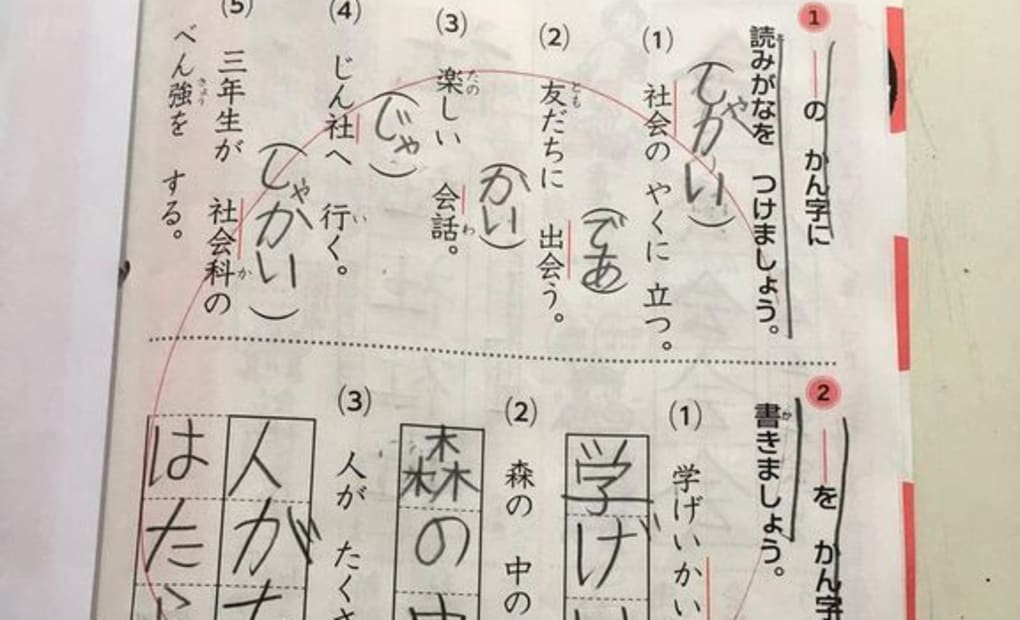 1
―の かん字に
読みがなを つけましょう。
(1)
社会の やくに 立つ。
(しゃかい)
(2)
友だちに 出会う。
とも
(であ)
(3)
楽しい 会話。
たの
わ
(かい)
(4)
じん社へ 行く。
い
(じゃ)
(5)
三年生が 社会科の
か
(しゃかい)
べん強を する。
きょう
2
―を かん字
書きましょう。
か
(1)
学げいかい
学げ
(2)
森の 中の
森の中
(3)
人が たくさ
人がた
はたら